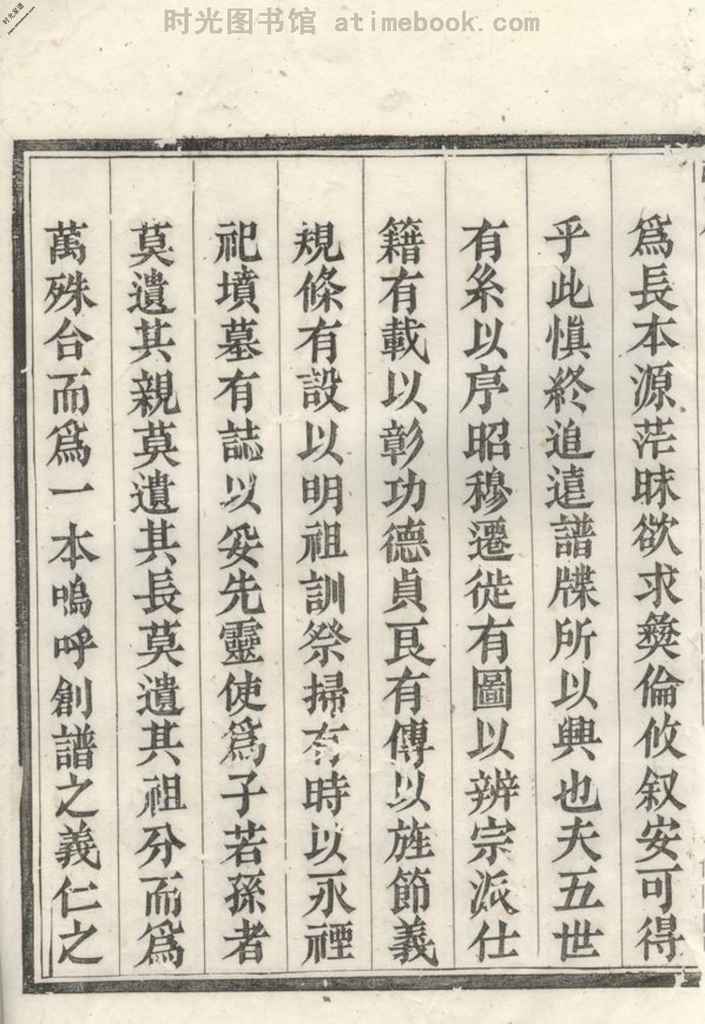 时光图书馆 atimebook.com
爲長本源茫昧欲求彝倫攸叙安可得
乎此慎終追遠譜牒所以興也夫五世
有系以序昭穆遷徙有圖以辨宗派仕
籍有載以彰功德貞良有傳以旌節義
規條有設以明祖訓祭掃有時以永禋
祀墳墓有誌以妥先靈使爲子若孫者
莫遺其親莫遺其長莫遺其祖分而爲
萬殊合而爲一本嗚呼創譜之義仁之